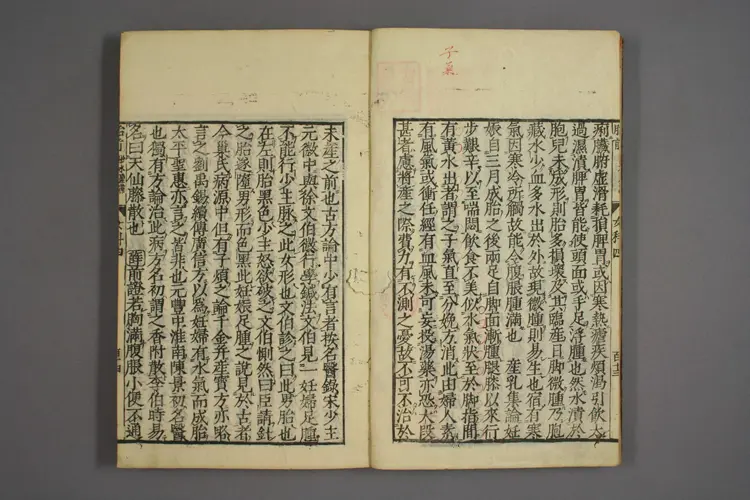 子氣
痢臟腑虛滑耗損脾胃或因寒熱瘧疾煩渴引飲太
過濕漬脾胃皆能使頭面或手足浮腫也然水漬於
胞兒未成形則胎多損壞及其臨產日脚微腫乃胞
藏水少血多水出於外故現微腫則易生也宿有寒
氣因寒冷所觸故能令腹脹腫滿也 產乳集論妊
娠自三月成胎之後兩足自脚面漸腫腿膝以來行
步艱辛以至喘悶飲食不美似水氣狀至於脚指間
有黃水出者謂之子氣直至分娩方消此由婦人素
有風氣或衝任經有血風未可妄投湯藥亦恐大叚
甚者慮將產之際費力有不測之憂故不可不治於
胎前
女科四
未產之前也古方論中少有言者按名醫錄宋少主
元徽中與徐文伯微行學鍼法文伯見一妊婦足腫
不能行少主脉之此女形也文伯診之曰此男胎也
在左則胎黑色少主怒欲破之文伯惻然曰臣請針
之胎遂墮男形而色黑此妊娠足腫之說見於古者
今巢氏病源中但有子煩之論千金并產寶方亦略
言之劉禹錫續傳廣信方以為妊婦有水氣而成胎
太平聖惠亦言之皆非也元豐中淮南陳景初名醫
也獨有方論治此病方名初謂之香附散李伯時易
名曰天仙藤散也 薛前證若胸滿腹脹小便不通
胎前
女科四